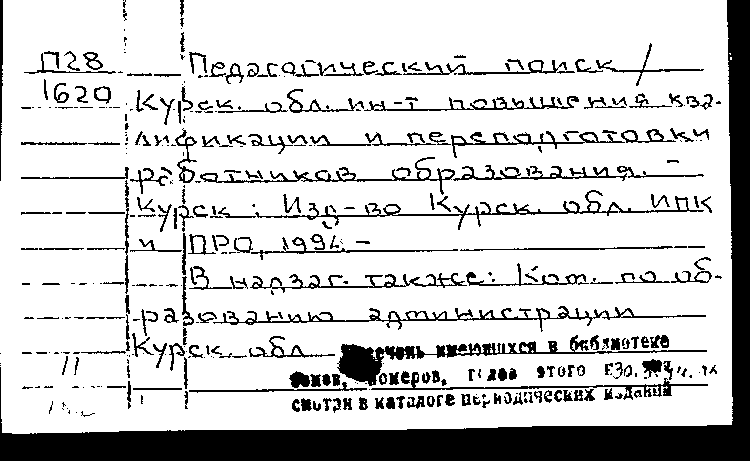 П28 Педагогический поиск /
1620 Курск. обл. ин-т повышения ква-
лификации и переподготовки
работников образования. –
Курск : Изд-во Курск. обл. ИПК
и ПРО, 1994. –
В надзаг. также: Ком. по об-
разованию администрации
Курск. обл
11 имеющихся в библиотеке
номеров, этого
смотри в каталоге периодических изданий